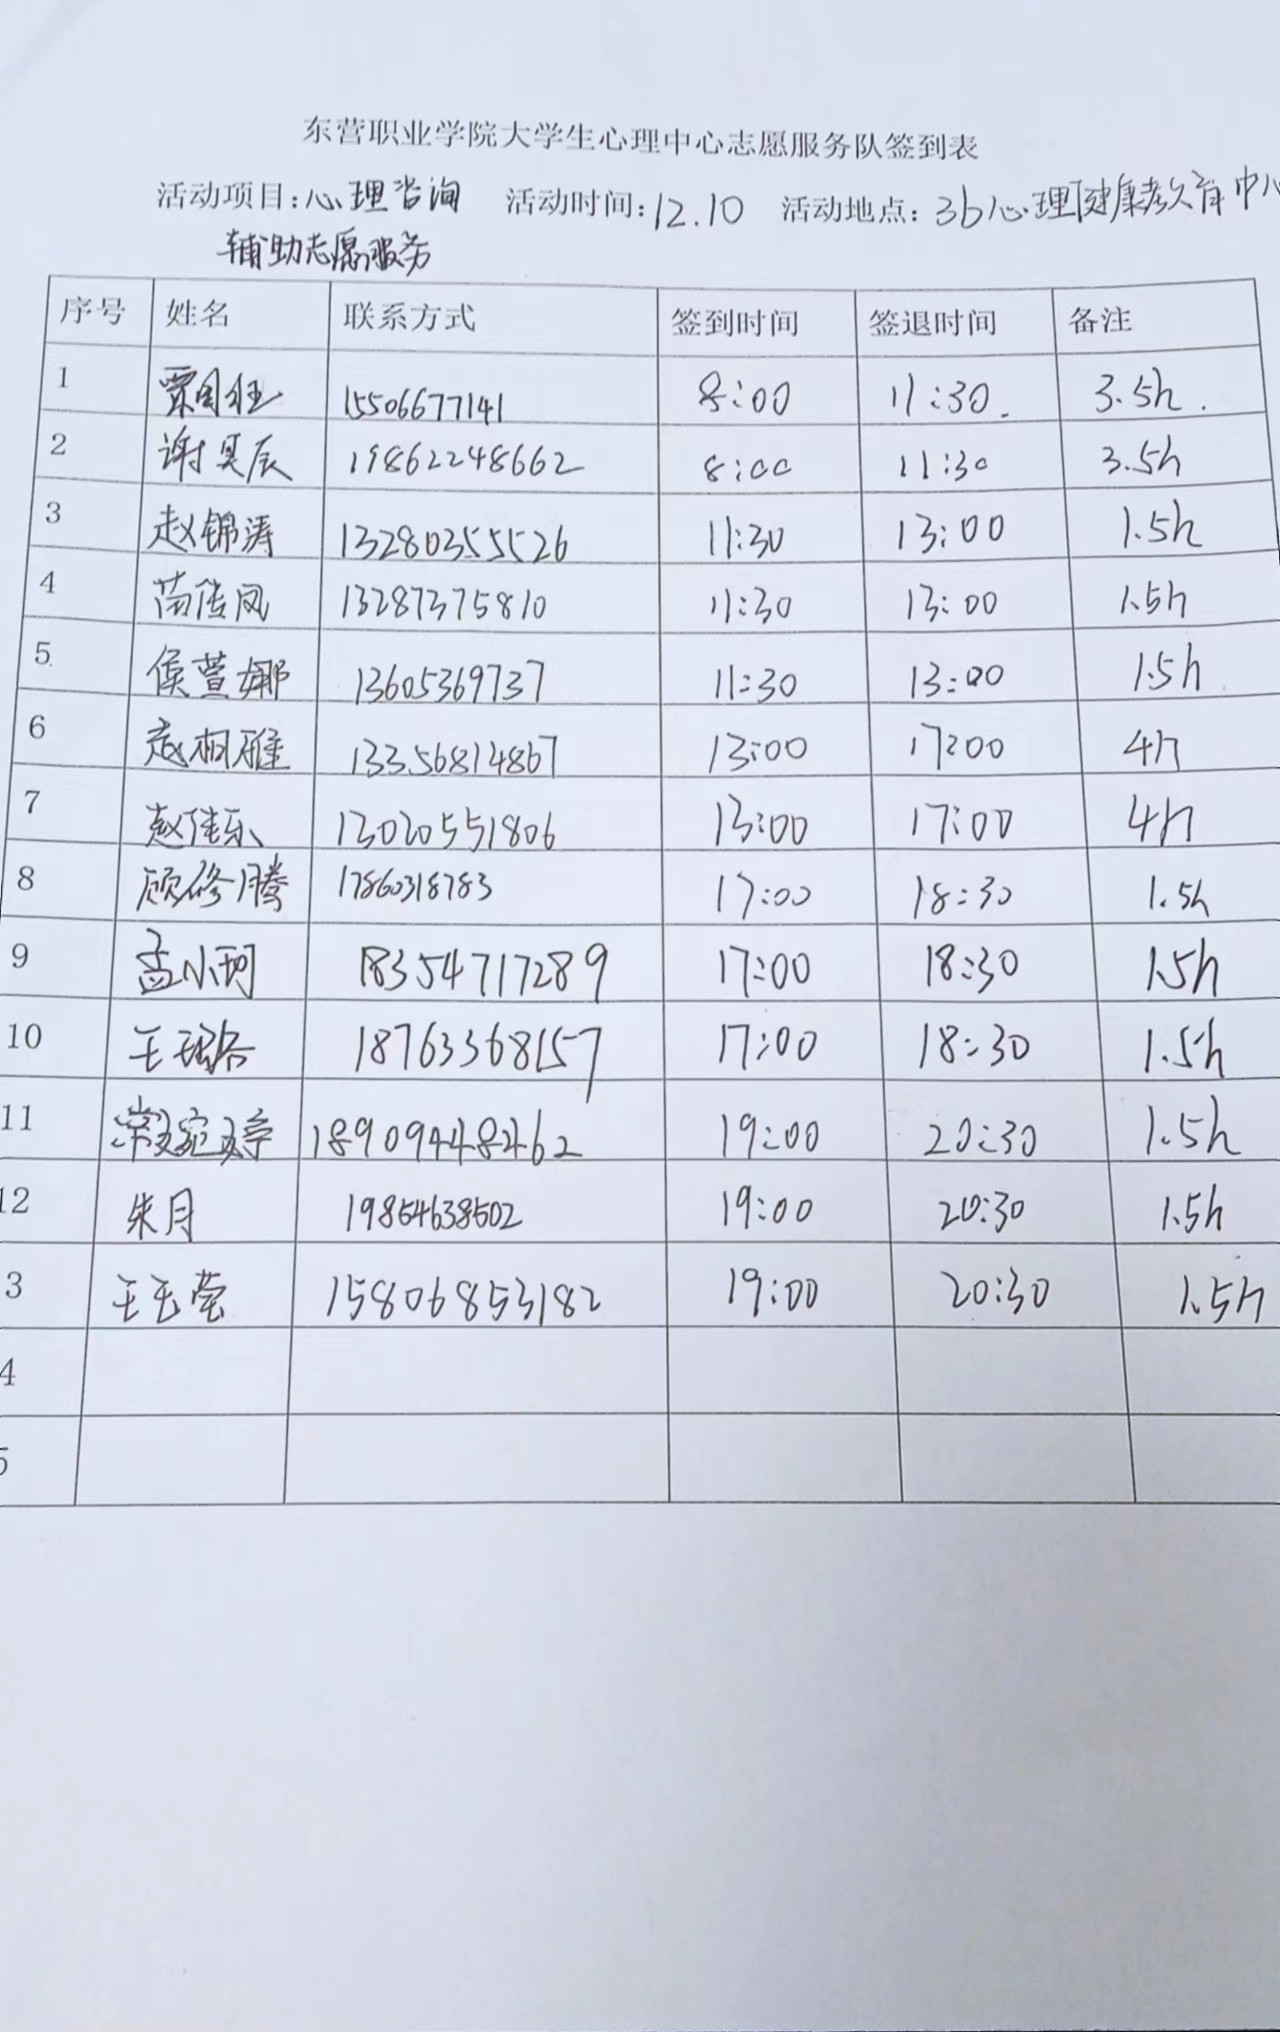 东营职业学院大学生心理中心志愿服务队签到表
活动项目:心理咨询 活动时间:12.10 活动地点:36心理健康教育中心
辅助志愿服务
序号 姓名 联系方式 签到时间 签退时间 备注
1 15506677141 8:00 11:30. 3.5h.
2 谢昊辰 19862248662 8:00 11:30 3.5h
3 赵锦涛 13280355526 11:30 13:00 1.5h
4 苗佳凤 13287375810 11:30 13:00 1.5h
5 侯萱娜 13605369737 11:30 13:00 1.5h
6 赵桐雅 13356814867 13:00 17:00 4h
7 赵佳乐 13020551806 13:00 17:00 4h
8 顾修腾 17860318783 17:00 18:30 1.5h
9 孟小珂 18354717289 17:00 18:30 1.5h
10 王瑶 18763368157 17:00 18:30 1.5h
11 18909448462 19:00 20:30 1.5h
12 朱月 19854638502 19:00 20:30 1.5h
3 王玉莹 15806853182 19:00 20:30 1.5h
4
5